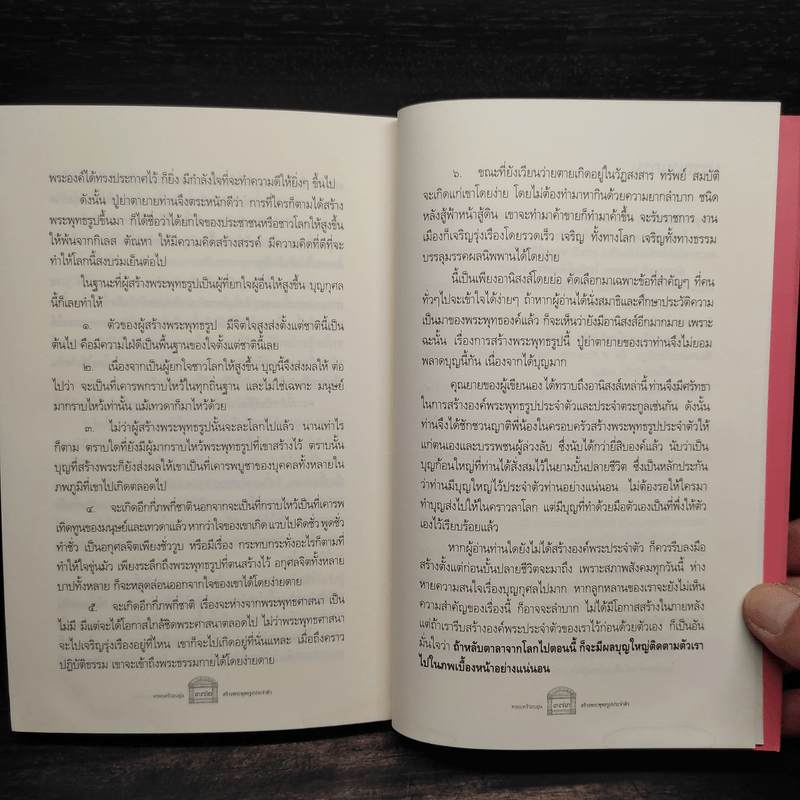 พระองค์ได้ทรงประกาศไว้ ก็ยิ่ง มีกำลังใจที่จะทำความดีให้ยิ่งๆ ขึ้นไป
ดังนั้น ปู่ย่าตายายท่านจึงตระหนักดีว่า การที่ใครก็ตามได้สร้าง
พระพุทธรูปขึ้นมา ก็ได้ชื่อว่าได้ยกใจของประชาชนหรือชาวโลกให้สูงขึ้น
ให้พ้นจากกิเลส ตัณหา ให้มีความคิดสร้างสรรค์ มีความคิดที่ดีที่จะ
ทำให้โลกนี้สงบร่มเย็นต่อไป
ในฐานะที่ผู้สร้างพระพุทธรูปเป็นผู้ที่ยกใจผู้อื่นให้สูงขึ้น บุญกุศล
นี้ก็เลยทำให้
๑. ตัวของผู้สร้างพระพุทธรูป มีจิตใจสูงส่งตั้งแต่ชาตินี้เป็น
ต้นไป คือมีความใฝ่ดีเป็นพื้นฐานของใจตั้งแต่ชาตินี้เลย
๒. เนื่องจากเป็นผู้ยกใจชาวโลกให้สูงขึ้น บุญนี้จึงส่งผลให้ ต่อ
ไปว่า จะเป็นที่เคารพกราบไหว้ในทุกถิ่นฐาน และไม่ใช่เฉพาะ มนุษย์
มากราบไหว้เท่านั้น แม้เทวดาก็มาไหว้ด้วย
๓. ไม่ว่าผู้สร้างพระพุทธรูปนั้นจะละโลกไปแล้ว นานเท่าไร
ก็ตาม ตราบใดที่ยังมีผู้มากราบไหว้พระพุทธรูปที่เขาสร้างไว้ ตราบนั้น
บุญที่สร้างพระก็ยังส่งผลให้เขาเป็นที่เคารพบูชาของบุคคลทั้งหลายใน
ภพภูมิที่เขาไปเกิดตลอดไป
๔. จะเกิดอีกกี่ภพกี่ชาตินอกจากจะเป็นที่กราบไหว้เป็นที่เคารพ
เทิดทูนของมนุษย์และเทวดาแล้ว หากว่าใจของเขาเกิด แวบไปคิดชั่ว พูดชั่ว
ทำชั่ว เป็นอกุศลจิตเพียงชั่ววูบ หรือมีเรื่อง กระทบกระทั่งอะไรก็ตามที่
ทำให้ใจขุ่นมัว เพียงระลึกถึงพระพุทธรูปที่ตนสร้างไว้ อกุศลจิตทั้งหลาย
บาปทั้งหลาย ก็จะหลุดล่อนออกจากใจของเขาได้โดยง่ายดาย
๕ จะเกิดอีกกี่ภพกี่ชาติ เรื่องจะห่างจากพระพุทธศาสนา เป็น
ไม่มี มีแต่จะได้โอกาสใกล้ชิดพระศาสนาตลอดไป ไม่ว่าพระพุทธศาสนา
จะไปเจริญรุ่งเรืองอยู่ที่ไหน เขาก็จะไปเกิดอยู่ที่นั่นแหละ เมื่อถึงคราว
ปฏิบัติธรรม เขาจะเข้าถึงพระธรรมกายได้โดยง่ายดาย
ครอบครัวอบอุ่น สร้างพระพุทธรูปประจำตัว
๖. ขณะที่ยังเวียนว่ายตายเกิดอยู่ในวัฏสงสาร ทรัพย์ สมบัติ
จะเกิดแก่เขาโดยง่าย โดยไม่ต้องทำมาหากินด้วยความยากลำบาก ชนิด
หลังสู้ฟ้าหน้าสู้ดิน เขาจะทำมาค้าขายก็ทำมาค้าขึ้น จะรับราชการ งาน
เมืองก็เจริญรุ่งเรืองโดยรวดเร็ว เจริญ ทั้งทางโลก เจริญทั้งทางธรรม
บรรลุมรรคผลนิพพานได้โดยง่าย
นี้เป็นเพียงอานิสงส์โดยย่อ คัดเลือกมาเฉพาะข้อที่สำคัญๆ ที่คน
ทั่วๆไปจะเข้าใจได้ง่ายๆ ถ้าหากผู้อ่านได้นั่งสมาธิและศึกษาประวัติความ
เป็นมาของพระพุทธองค์แล้ว ก็จะเห็นว่ายังมีอานิสงส์อีกมากมาย เพราะ
ฉะนั้น เรื่องการสร้างพระพุทธรูปนี้ ปู่ย่าตายายของเราท่านจึงไม่ยอม
พลาดบุญนี้กัน เนื่องจากได้บุญมาก
คุณยายของผู้เขียนเอง ได้ทราบถึงอานิสงส์เหล่านี้ ท่านจึงมีศรัทธา
ในการสร้างองค์พระพุทธรูปประจำตัวและประจำตระกูลเช่นกัน ดังนั้น
ท่านจึงได้ชักชวนญาติพี่น้องในครอบครัวสร้างพระพุทธรูปประจำตัวให้
แก่ตนเองและบรรพชนผู้ล่วงลับ ซึ่งนับได้กว่ายี่สิบองค์แล้ว นับว่าเป็น
บุญก้อนใหญ่ที่ท่านได้สั่งสมไว้ในยามบั้นปลายชีวิต ซึ่งเป็นหลักประกัน
ว่าท่านมีบุญใหญ่ไว้ประจำตัวท่านอย่างแน่นอน ไม่ต้องรอให้ใครมา
ทำบุญส่งไปให้ในคราวลาโลก แต่มีบุญที่ทำด้วยมือตัวเองเป็นที่พึ่งให้ตัว
เองไว้เรียบร้อยแล้ว
หากผู้อ่านท่านใดยังไม่ได้สร้างองค์พระประจำตัว ก็ควรรีบลงมือ
สร้างตั้งแต่ก่อนบั้นปลายชีวิตจะมาถึง เพราะสภาพสังคมทุกวันนี้ ห่าง
หายความสนใจเรื่องบุญกุศลไปมาก หากลูกหลานของเราจะยังไม่เห็น
ความสำคัญของเรื่องนี้ ก็อาจจะลำบาก ไม่ได้มีโอกาสสร้างในภายหลัง
แต่ถ้าเรารีบสร้างองค์พระประจำตัวของเราไว้ก่อนด้วยตัวเอง ก็เป็นอัน
มั่นใจว่า ถ้าหลับตาลาจากโลกไปตอนนี้ ก็จะมีผลบุญใหญ่ติดตามตัวเรา
ไปในภพเบื้องหน้าอย่างแน่นอน
ครอบครัวอบอุ่น สร้างพระพุทธรูปประจำตัว